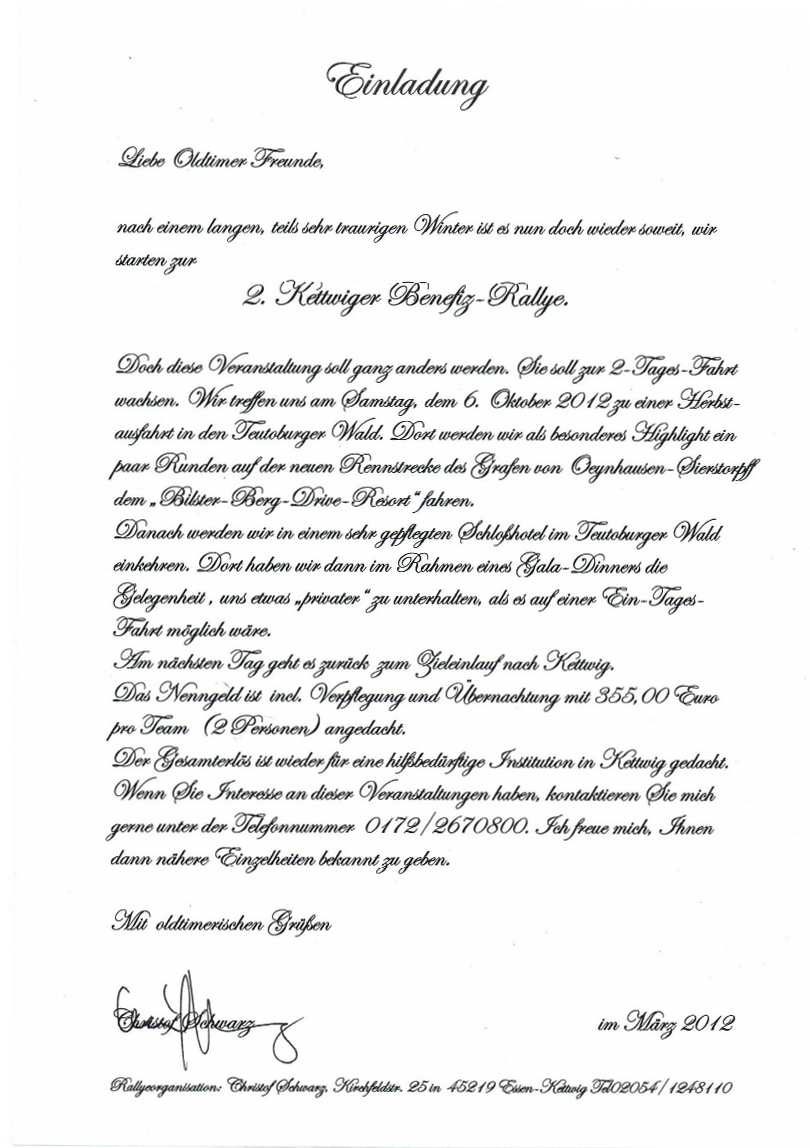 Einladung
Liebe Oldtimer Freunde,
nach einem langen, teils sehr traurigen Winter ist es nun doch wieder soweit, wir
starten zur
2. Kettwiger Benefiz-Rallye.
Doch diese Veranstaltung soll ganz anders werden. Sie soll zur 2-Tages-Fahrt
wachsen. Wir treffen uns am Samstag, dem 6. Oktober 2012 zu einer Herbst-
ausfahrt in den Teutoburger Wald. Dort werden wir als besonderes Highlight ein
paar Runden auf der neuen Rennstrecke des Grafen von Oeynhausen-Sierstorpff
dem „Bilster-Berg-Drive-Resort“ fahren.
Danach werden wir in einem sehr gepflegten Schloßhotel im Teutoburger Wald
einkehren. Dort haben wir dann im Rahmen eines Gala-Dinners die
Gelegenheit, uns etwas „privater“ zu unterhalten, als es auf einer Ein-Tages-
Fahrt möglich wäre.
Am nächsten Tag geht es zurück zum Zieleinlauf nach Kettwig.
Das Nenngeld ist incl. Verpflegung und Übernachtung mit 355,00 Euro
pro Team (2 Personen) angedacht.
Der Gesamterlös ist wieder für eine hilfsbedürftige Institution in Kettwig gedacht.
Wenn Sie Interesse an dieser Veranstaltungen haben, kontaktieren Sie mich
gerne unter der Telefonnummer 0172/2670800. Ich freue mich, Ihnen
dann nähere Einzelheiten bekannt zu geben.
Mit oldtimerischen Grüßen
Christof Schwarz im März 2012
Rallyeorganisation: Christof Schwarz, Kirchfeldstr. 25 in 45219 Essen-Kettwig Tel02054/1248110